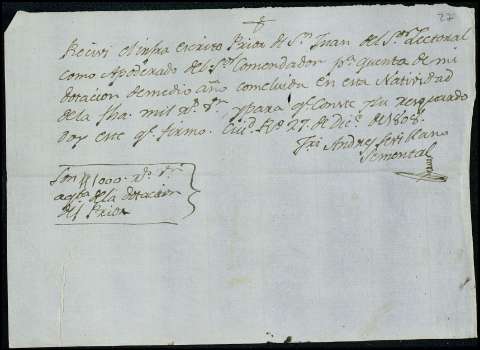 27
Recivi el infra escrito Prior de Sn Juan del Sor Lectoral
como Apoderado del Sor Comendador pr quenta de mi
dotacion de medio año concluida en esta Natividad
de la fha. mil rs vn y para qe conste y su resguardo
doy este qe firmo. Ciud. Rl 27 de Dice de 1808.
Frei Andres Sevillano
Son 1000 rs vn
a qta de la dotacion
del Prior